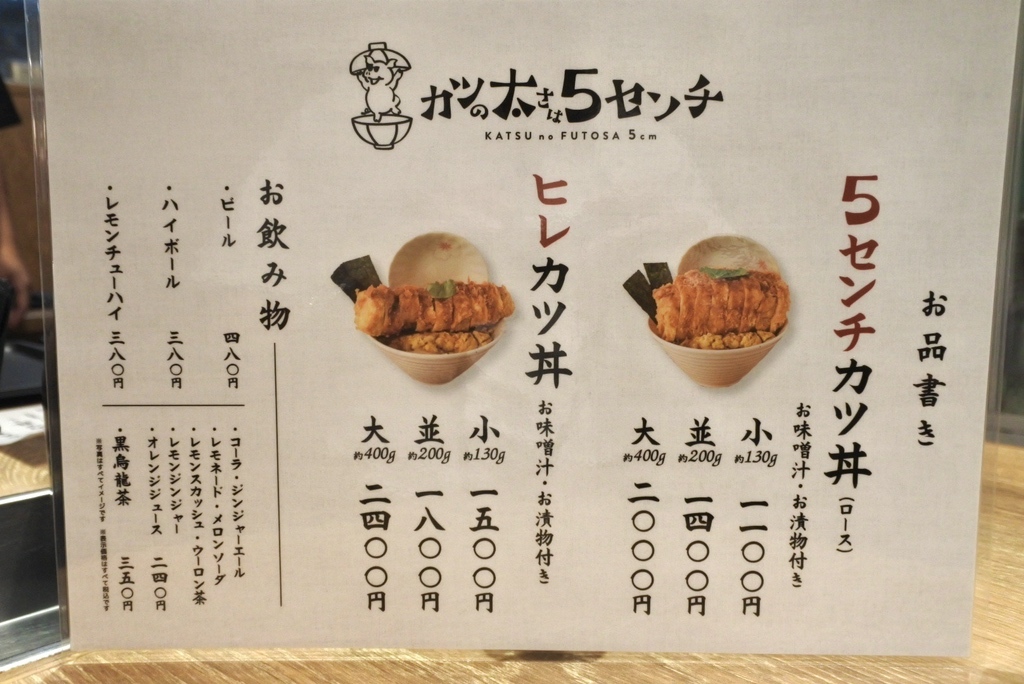 カツの太さは5センチ
KATSU no FUTOSA 5cm
お品書き
5センチカツ丼(ロース)
お味噌汁・お漬物付き
小 約130g 一一〇〇円
並 約200g 一四〇〇円
大 約400g 二〇〇〇円
ヒレカツ丼
お味噌汁・お漬物付き
小 約130g 一五〇〇円
並 約200g 一八〇〇円
大 約400g 二四〇〇円
お飲み物
・ビール 四八〇円
・ハイボール 三八〇円
・レモンチューハイ 三八〇円
・コーラ・ジンジャーエール
・レモネード・メロンソーダ
・レモンスカッシュ・ウーロン茶
・レモンジンジャー
・オレンジジュース 二四〇円
・黒烏龍茶 三五〇円
※写真はすべてイメージです ※表示価格はすべて税込です